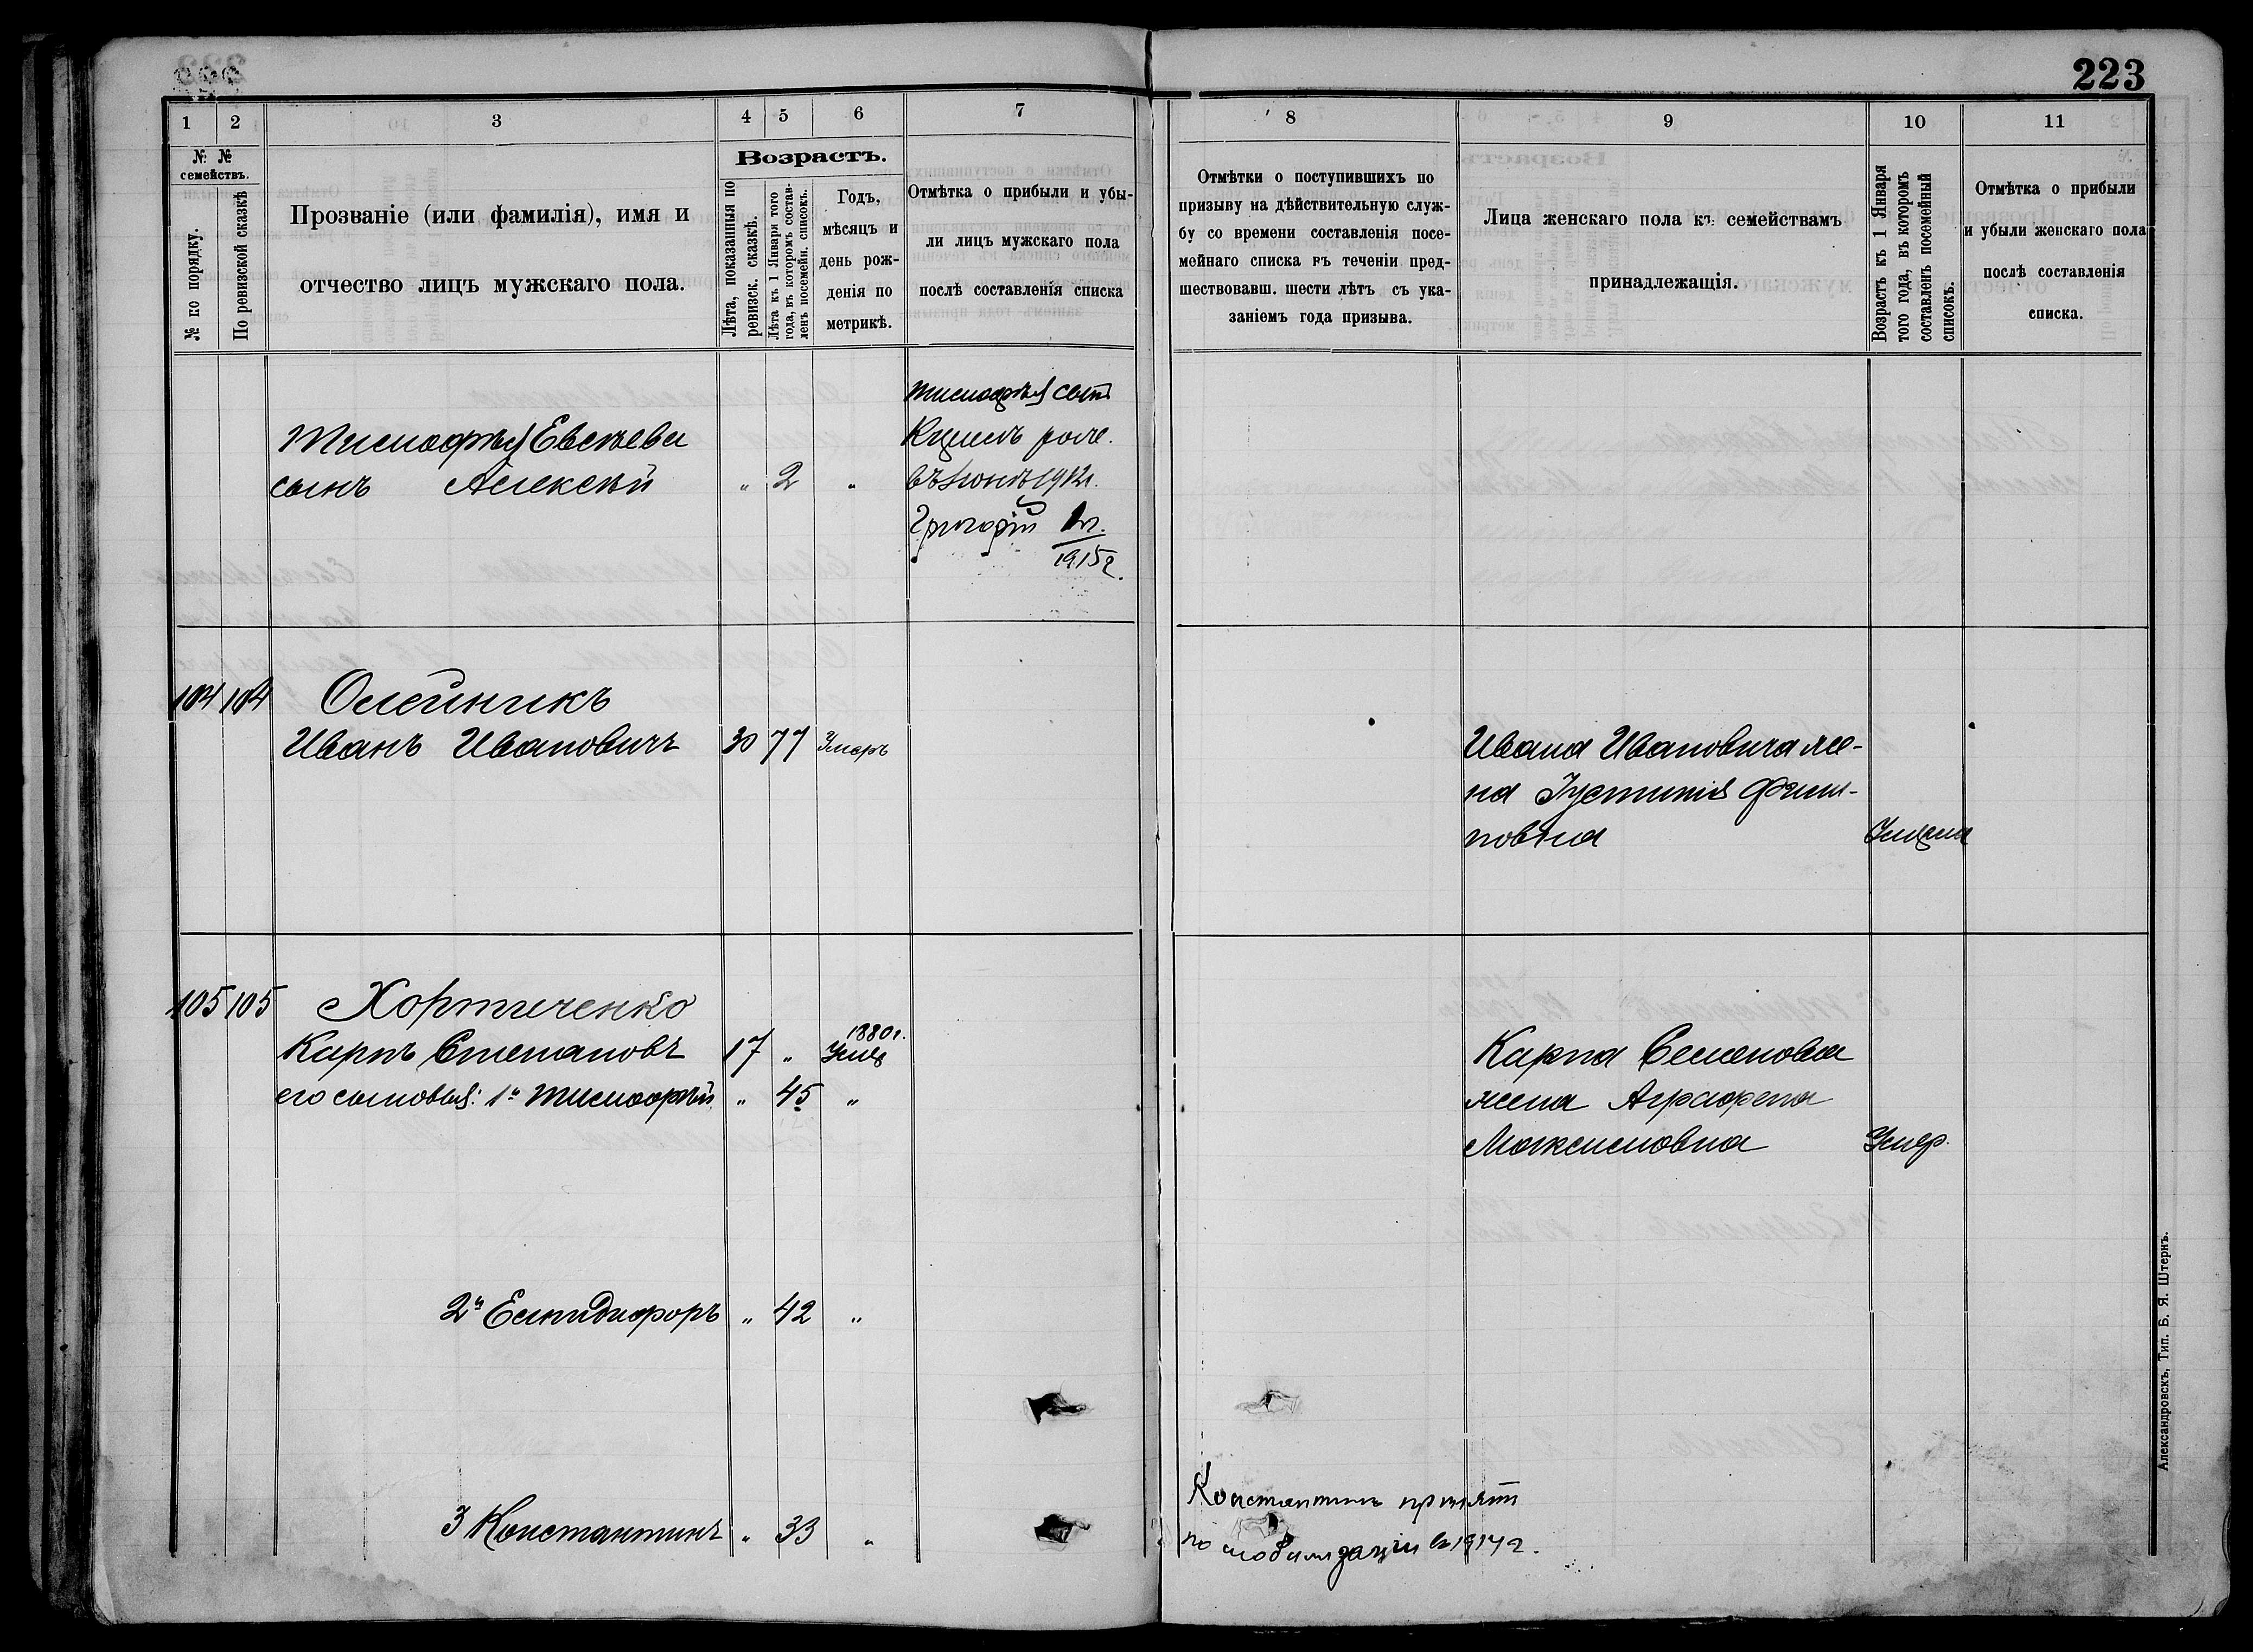 223
1
2
3
4
5
6
7
8
9
10
11
№ №
семействъ.
№ по порядку.
По ревизской сказкѣ
Прозваніе (или фамилія), имя и
отчество лицъ мужскаго пола.
Возрастъ.
Лѣта, показанныя по
ревизск. сказкѣ.
Лѣта къ 1 Января того
года, въ которомъ состав-
ленъ посемейн. списокъ.
Годъ,
мѣсяцъ и
день рож-
денія по
метрикѣ.
Отмѣтка о прибыли и убы-
ли лицъ мужскаго пола
послѣ составленія списка
Отмѣтки о поступившихъ по
призыву на дѣйствительную служ-
бу со времени составленія посе-
мейнаго списка въ теченіи пред-
шествовавш. шести лѣтъ съ ука-
заніемъ года призыва.
Лица женскаго пола къ семействамъ
принадлежащія.
Возрастъ къ 1 Января
того года, въ которомъ
составленъ посемейный
списокъ.
Отмѣтка о прибыли
и убыли женскаго пола
послѣ составленія
списка.
Тимофѣя Евсѣева
сынъ Алексѣй " 2 "
Тимофѣя сынъ
род.
въ Іюнѣ 1912г.
Григорій
1915г.
104 104 Олейникъ
Иванъ Ивановичъ 30 77 Умеръ
Ивана Ивановича же-
на Іустинія Филип-
повна Умерла
105 105 Хортиченко
Карпъ Степановъ 17 " 1880г. Умер
его сыновья: 1й Тимофѣй " 45 "
Карпа Семенова
жена Аграфена
Максимовна Умер.
2й Елпидифоръ " 42 "
3 Константинъ " 33 "
Константинъ принятъ
по мобилизаціи въ 1914 г.
Александровскъ, Тип. Б. Я. Штернъ.